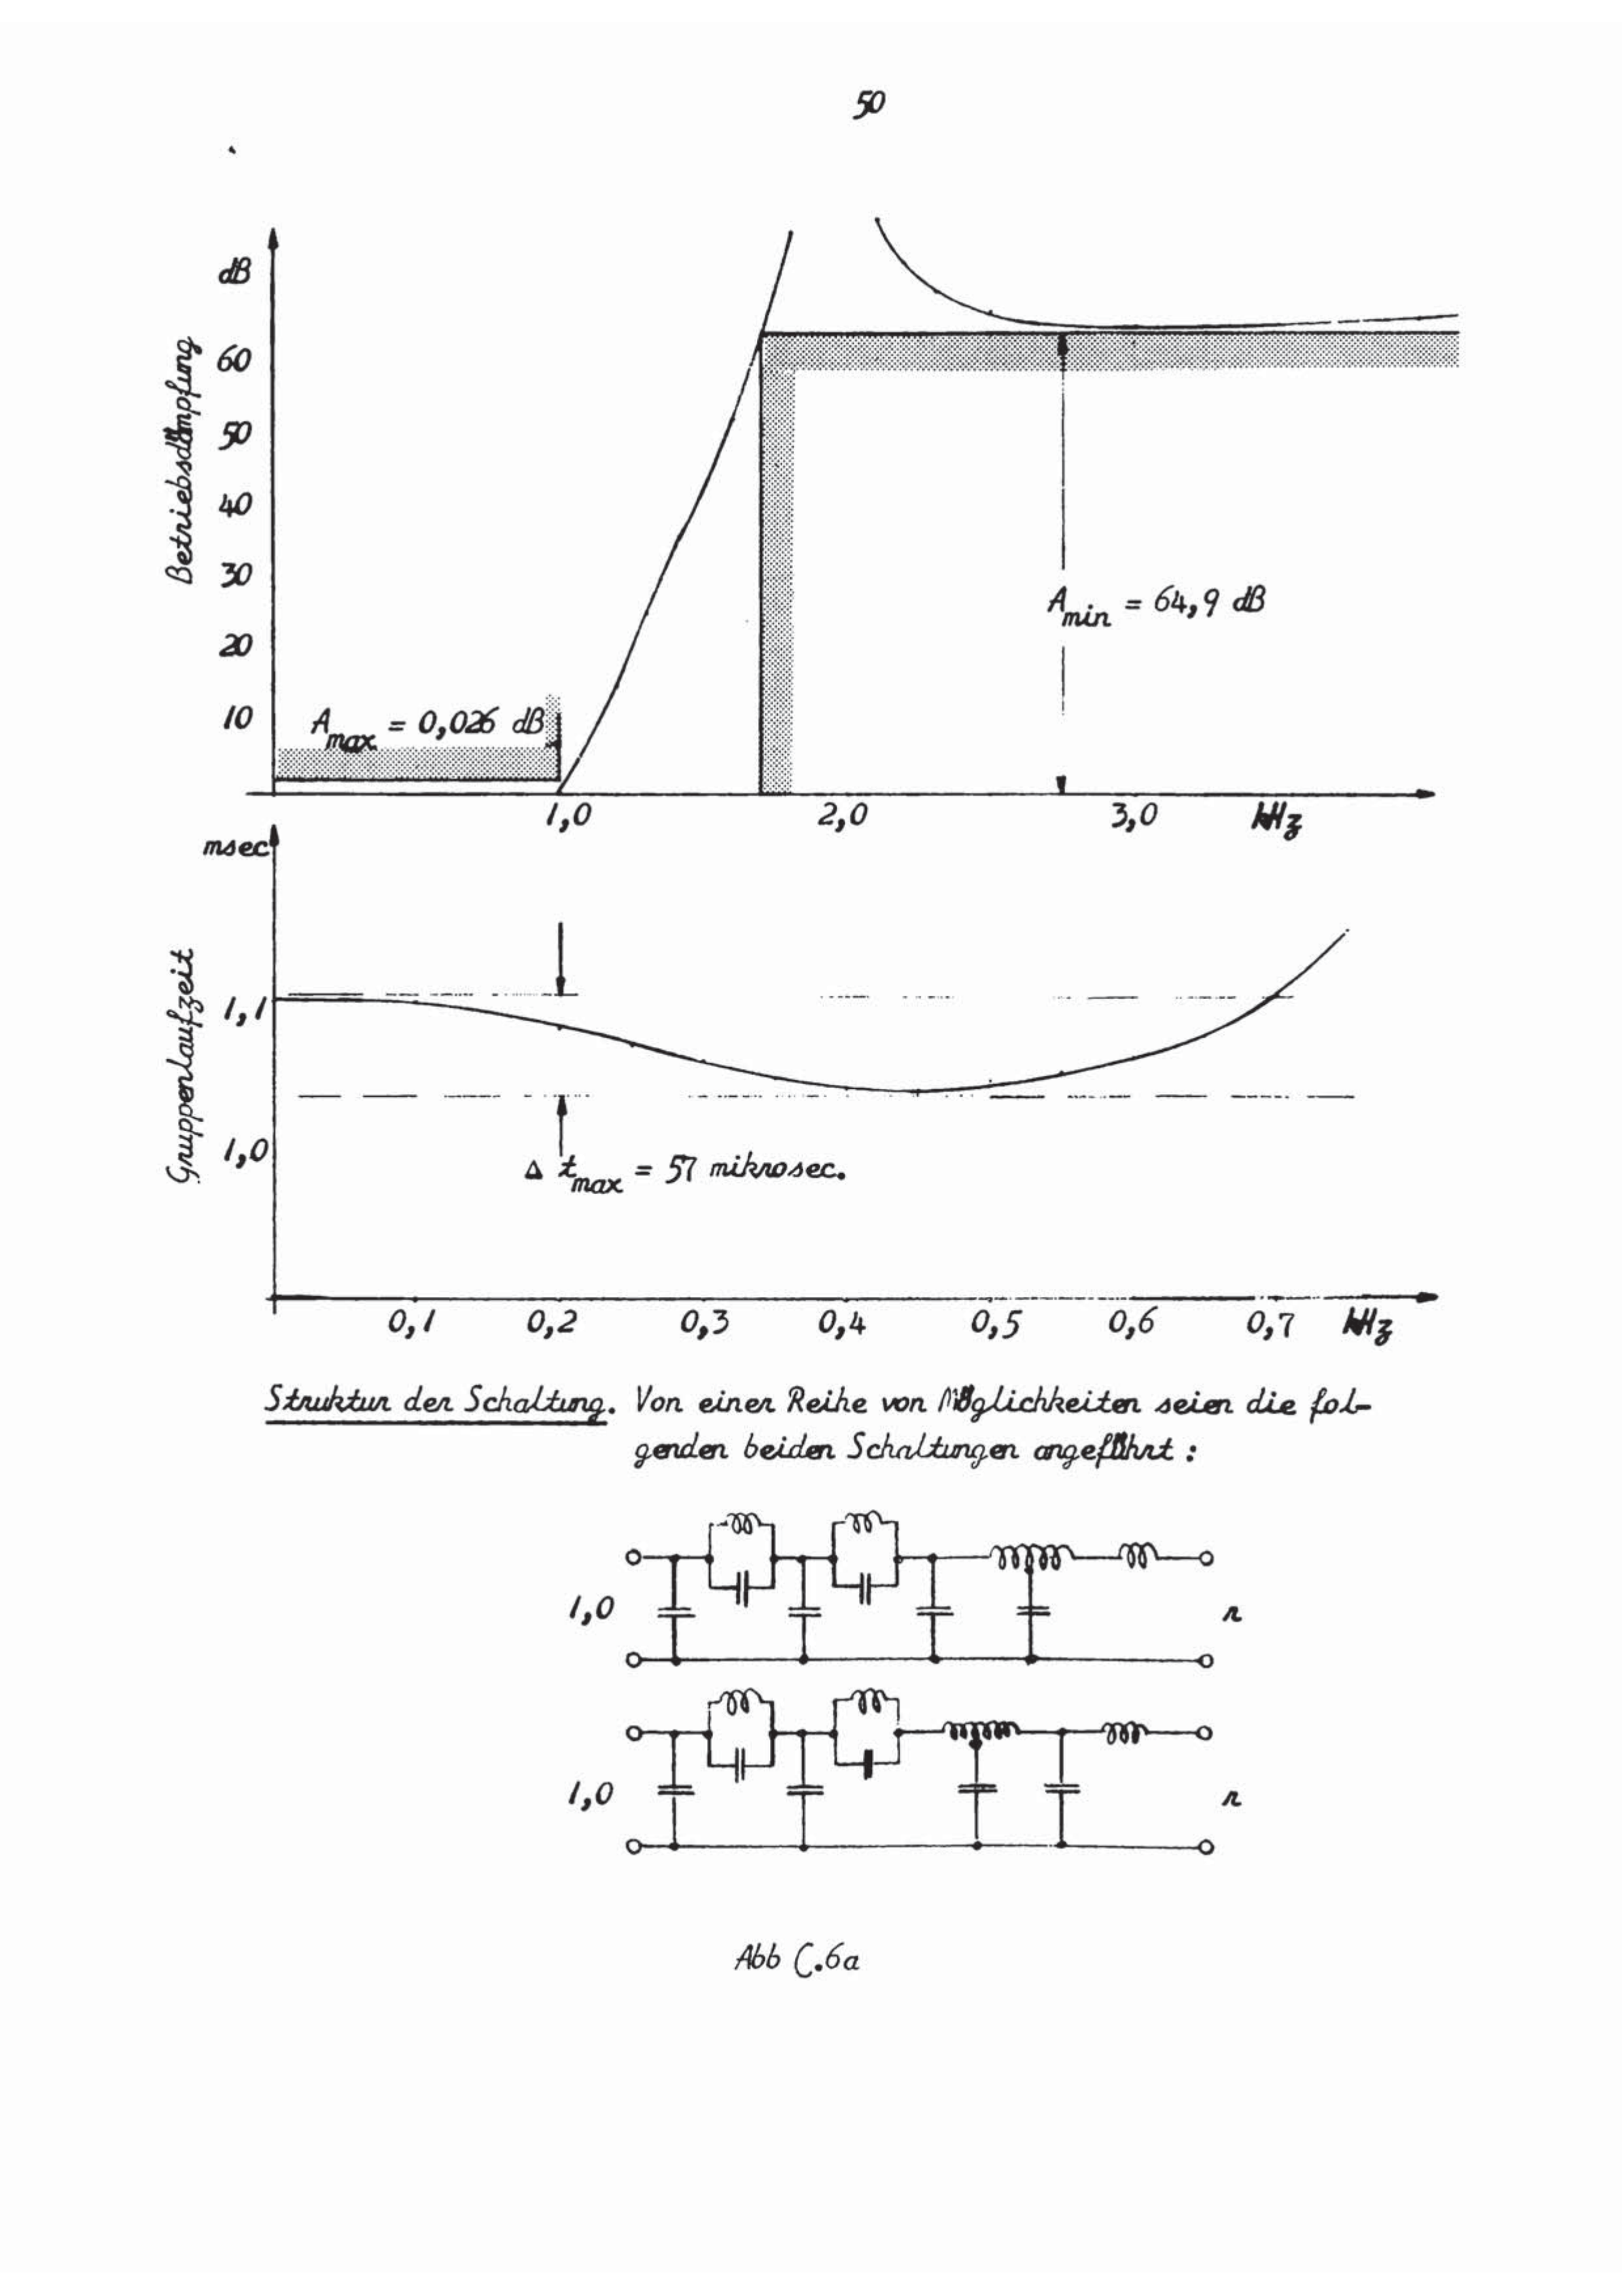 50
dB
60
50
40
30
20
10
Betriebsdämpfung
A min = 64,9 dB
A max = 0,026 dB
1,0 2,0 3,0 kHz
msec
1,1
1,0
Gruppenlaufzeit
Δ t max = 57 mikrosec.
0,1 0,2 0,3 0,4 0,5 0,6 0,7 kHz
Struktur der Schaltung. Von einer Reihe von Möglichkeiten seien die fol-
genden beiden Schaltungen angeführt :
1,0 r
1,0 r
Abb C.6a